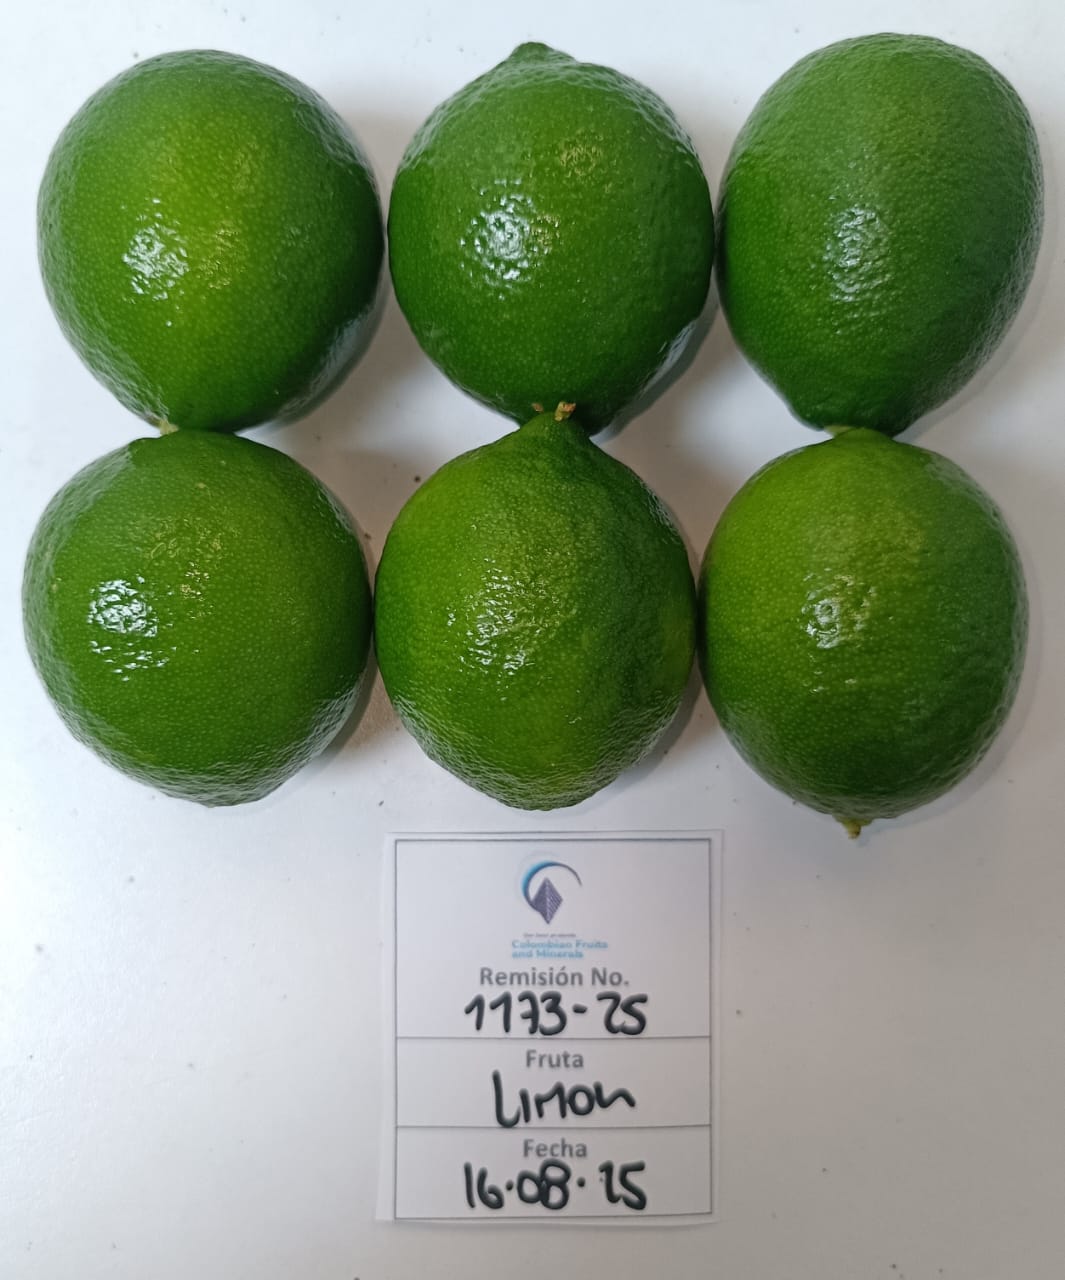 Colombian Fruits
and Minerals
Remisión No.
1173-25
Fruta
Limon
Fecha
16.08.25